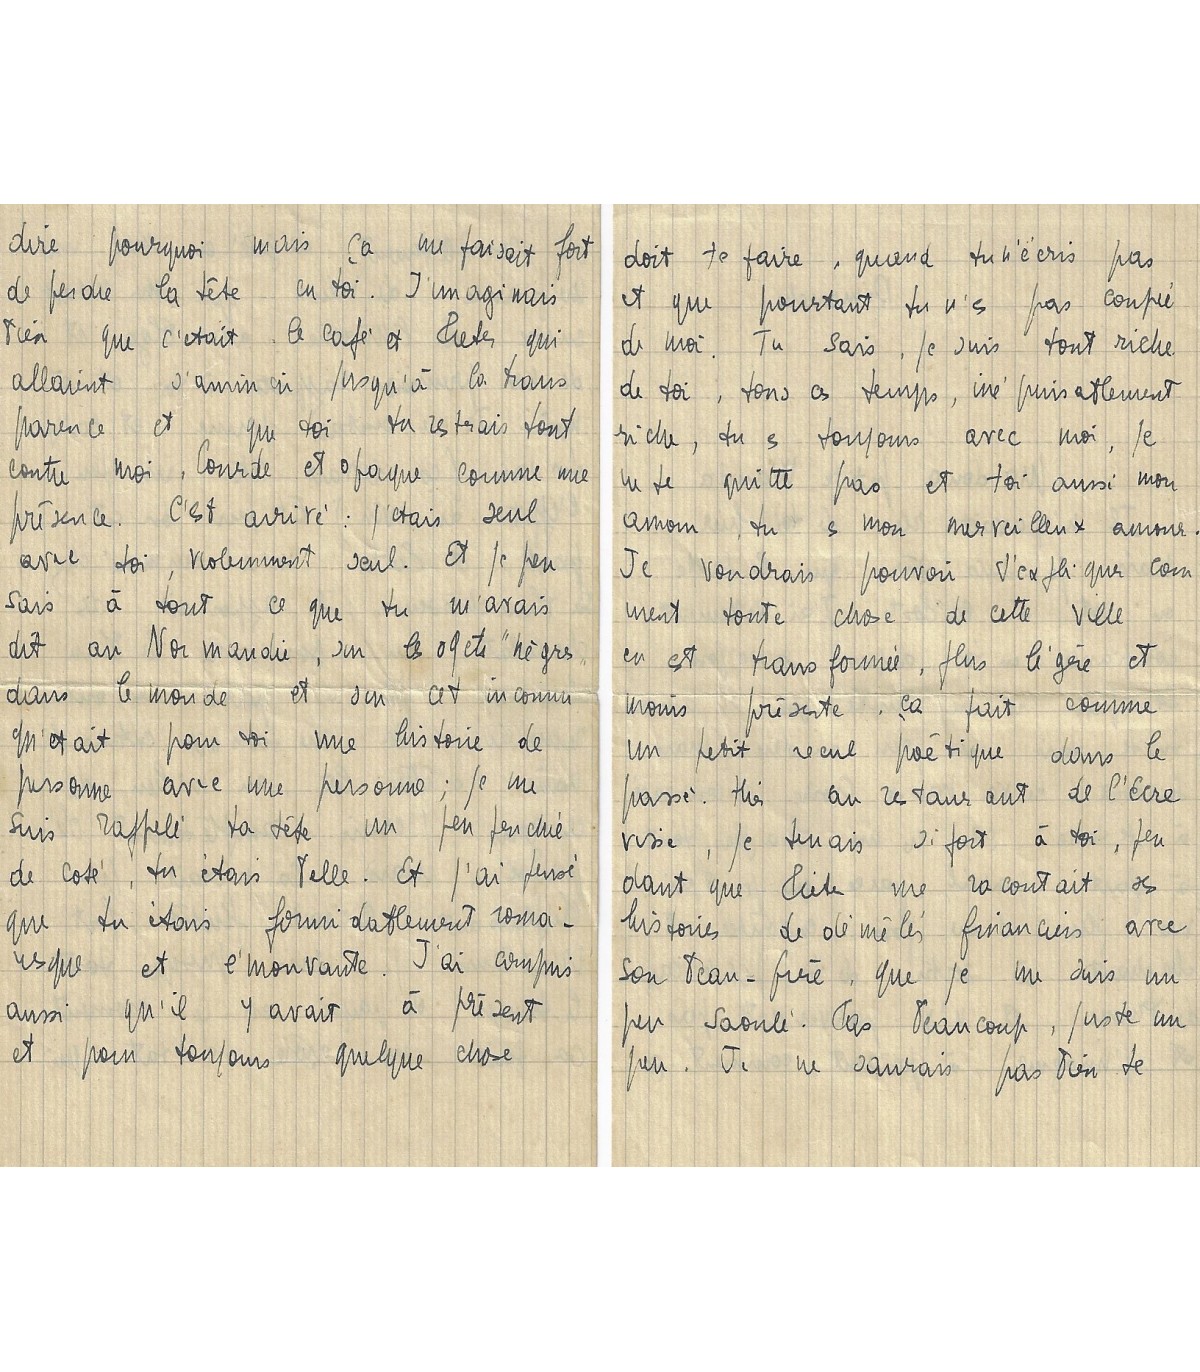 dire pourquoi mais ça me faisait fort
de perdre la tête en toi. J'imaginais
bien que c'était le café et qui
allaient s'amincir jusqu'à la trans
parence et que toi tu resterais tout
contre moi, lourde et opaque comme une
présence. C'est arrivé : j'étais seul
avec toi, violemment seul. Et je pen
sais à tout ce que tu m'avais
dit au Normandie, sur les objets "nègres"
dans le monde et sur cet inconnu
qu'était pour toi une histoire de
personne avec une personne ; je me
suis rappelé ta tête un peu penchée
de coté, tu étais belle. Et j'ai pensé
que tu étais formidablement roma-
nesque et émouvante. J'ai compris
aussi qu'il y avait à présent
et pour toujours quelque chose
doit te faire, quand tu n'écris pas
et que pourtant tu n'es pas coupée
de moi. Tu sais, je suis tout riche
de toi, tous ces temps, inépuisablement
riche, tu es toujours avec moi, je
ne te quitte pas et toi aussi mon
amour, tu es mon merveilleux amour.
Je voudrais pouvoir t'expliquer com
ment toute chose de cette ville
en est transformée, plus légère et
moins présente. ça fait comme
un petit recul poëtique dans le
passé. Hier au restaurant de l'Écre
visse, je tenais si fort à toi, pen
dant que me racontait ses
histoires de démêlés financiers avec
son beau-frère, que je me suis un
peu saoulé. Pas beaucoup, juste un
peu. Je ne saurais pas bien te